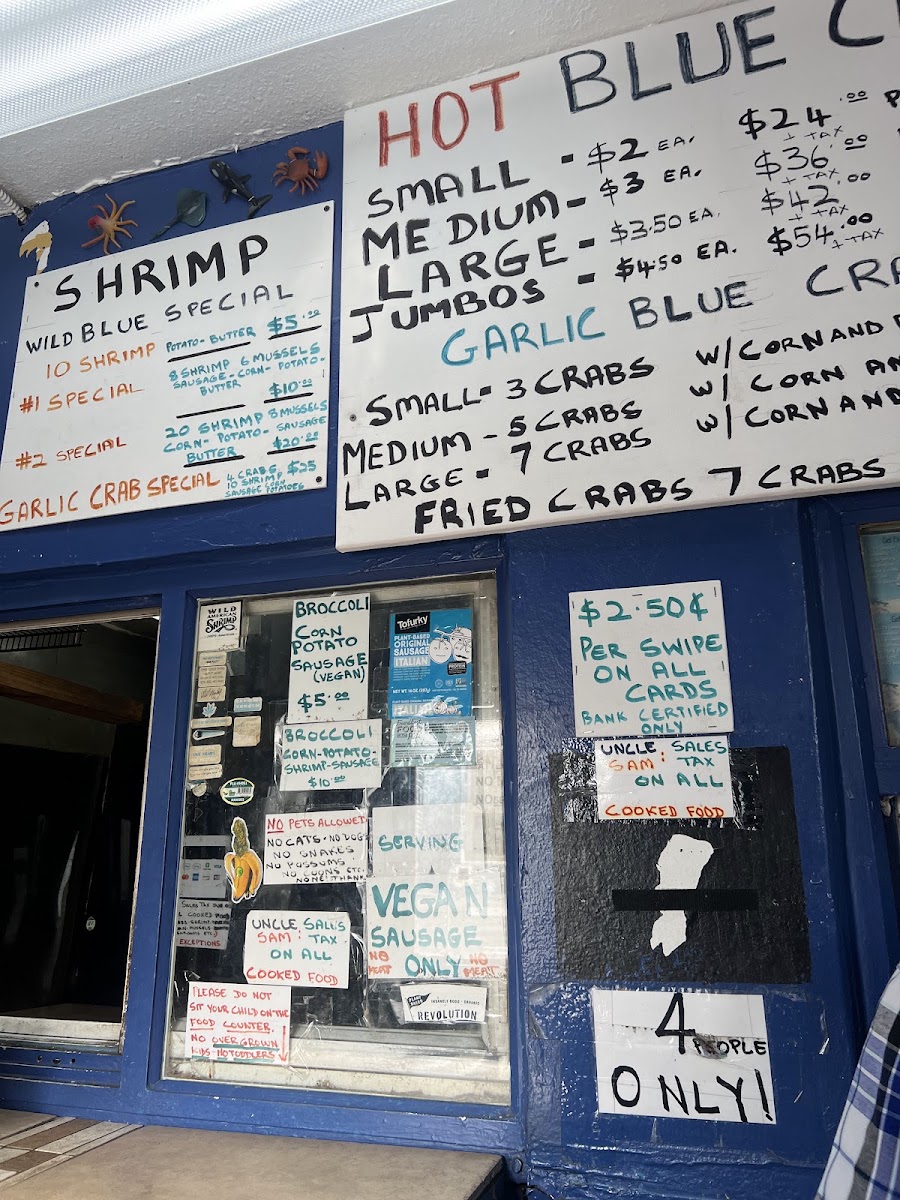 SHRIMP
WILD BLUE SPECIAL
10 SHRIMP POTATO-BUTTER $5.00
#1 SPECIAL 8 SHRIMP 6 MUSSELS
SAUSAGE-CORN-POTATO-
BUTTER $10.00
#2 SPECIAL 20 SHRIMP 8 MUSSELS
CORN-POTATO-SAUSAGE
BUTTER $20.00
GARLIC CRAB SPECIAL 4 CRABS $25
10 SHRIMP
SAUSAGE CORN
POTATOES
HOT BLUE
SMALL - $2 EA. $24.00
+ TAX
MEDIUM - $3 EA. $36.00
+ TAX
LARGE - $3.50 EA. $42.00
+ TAX
JUMBOS - $4.50 EA. $54.00
+ TAX
GARLIC BLUE CRA
SMALL- 3 CRABS W/CORN AND
MEDIUM - 5 CRABS W/ CORN AN
LARGE - 7 CRABS W/CORN AND
FRIED CRABS 7 CRABS
WILD
AMERICAN
SHRIMP
BROCCOLI
CORN
POTATO
SAUSAGE
(VEGAN)
$5.00
Tofurky
PLANT-BASED
ORIGINAL
SAUSAGE
ITALIAN
BROCCOLI
CORN-POTATO-
SHRIMP-SAUSAGE
$10.00
NO PETS ALLOWED
NO CATS-NO DOGS
NO SNAKES
NO POSSUMS
NO COONS ETC.
NONE! THANK
SERVING
VEGAN
SAUSAGE
NO MEAT ONLY NO MEAT
UNCLE SALES
SAM: TAX
ON ALL
COOKED FOOD
REVOLUTION
EXCEPTIONS
PLEASE DO NOT
SIT YOUR CHILD ON THE
FOOD COUNTER.
NO OVERGROWN
KIDS-NO TODDLERS
$2.50¢
PER SWIPE
ON ALL
CARDS
BANK CERTIFIED
ONLY
UNCLE SALES
SAM: TAX
ON ALL
COOKED FOOD
4 PEOPLE
ONLY!